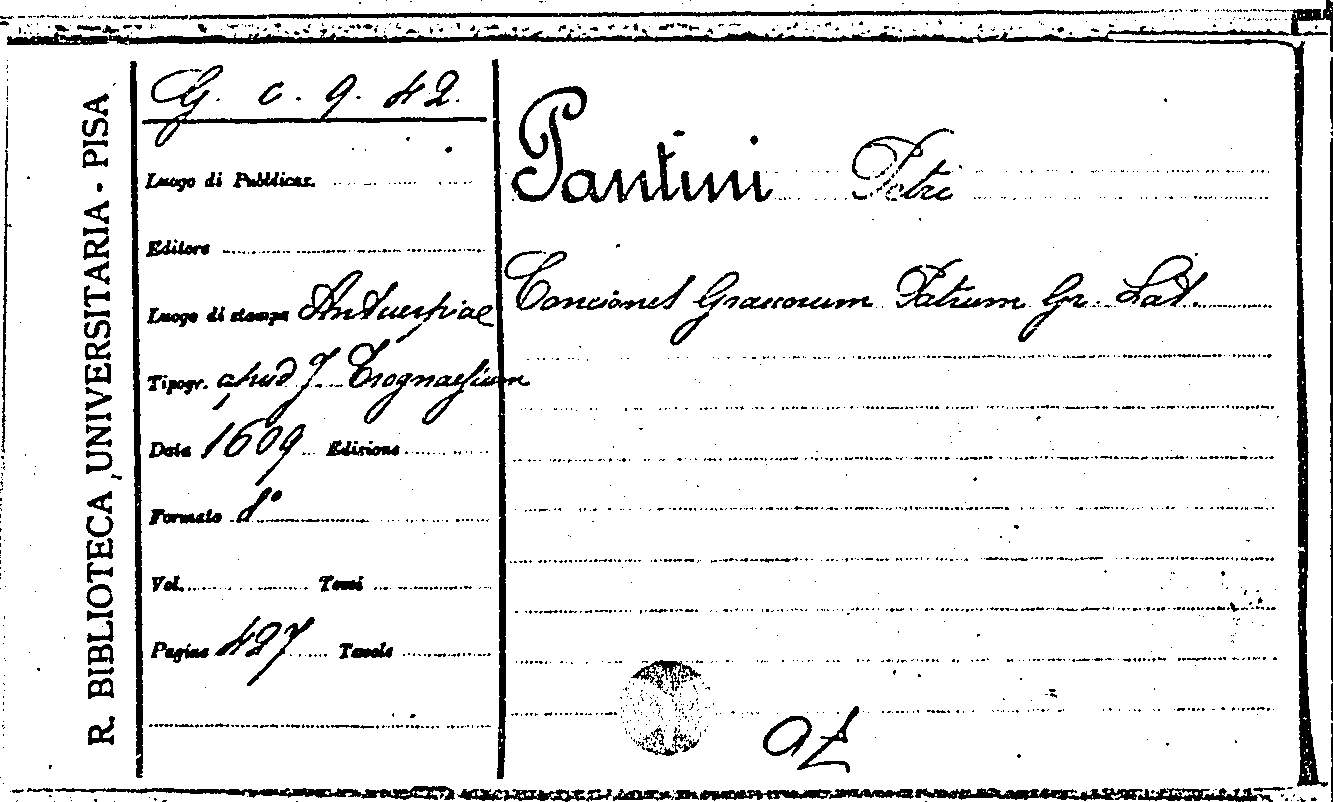 R. BIBLIOTECA UNIVERSITARIA - PISA
G. c. 9. 42.
Luogo di Pubblicaz.
Editore
Luogo di stampa Antuerpiae
Tipogr. apud J. Trognaesium
Data 1609 Edizione
Formato 8°
Vol. Tomi
Pagine 427 Tavole
Pantini Petri
Conciones Graecorum Patrum Gr. Lat.